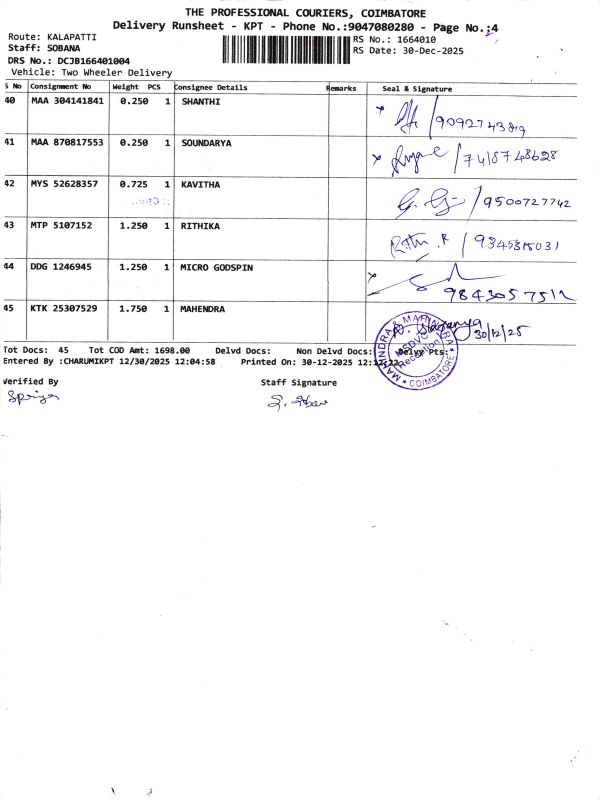 THE PROFESSIONAL COURIERS, COIMBATORE
Delivery Runsheet - KPT - Phone No.:9047080280 - Page No.:4
Route: KALAPATTI
Staff: SOBANA
DRS No.: DCJB166401004
Vehicle: Two Wheeler Delivery
RS No.: 1664010
RS Date: 30-Dec-2025
S No Consignment No Weight PCS Consignee Details Remarks Seal & Signature
40 MAA 304141841 0.250 1 SHANTHI 9092743819
41 MAA 870817553 0.250 1 SOUNDARYA 7418748628
42 MYS 52628357 0.725 1 KAVITHA 9500727742
43 MTP 5107152 1.250 1 RITHIKA Rithi. R
44 DDG 1246945 1.250 1 MICRO GODSPIN
45 KTK 25307529 1.750 1 MAHENDRA 30/12/25
MAHINDRA & MAHINDRA
Reception
COIMBATORE
Tot Docs: 45 Tot COD Amt: 1698.00 Delvd Docs: Non Delvd Docs: Delvy Pts:
Entered By :CHARUMIKPT 12/30/2025 12:04:58 Printed On: 30-12-2025
Verified By Staff Signature